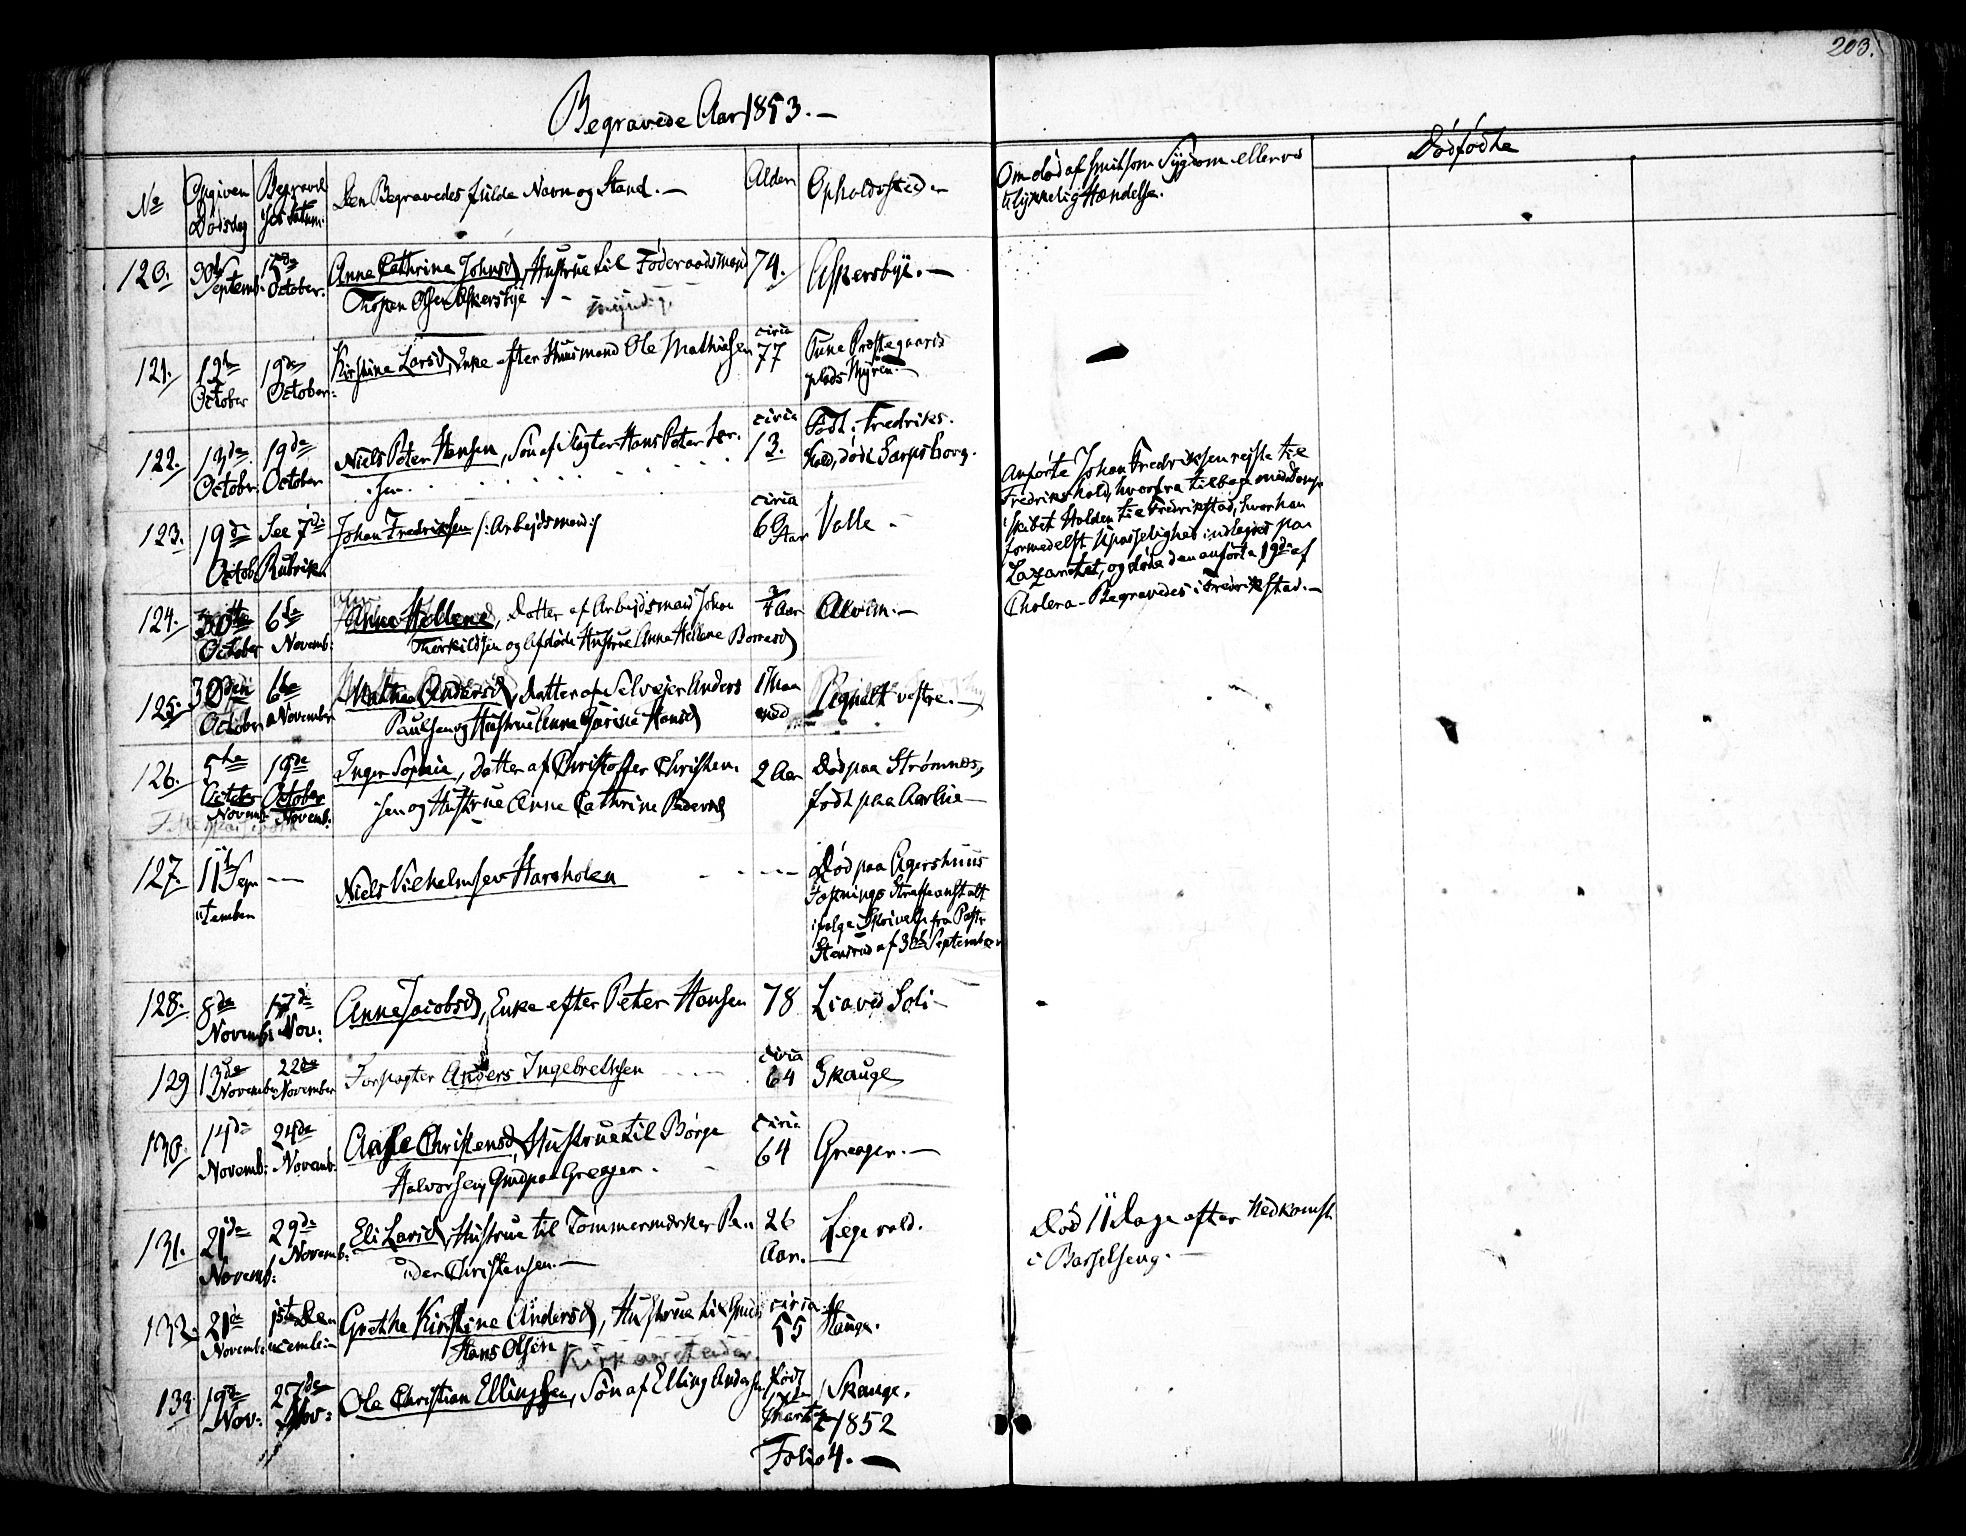 203.
Begravede Aar 1853. —
No
Opgiven
Dødsdag
Begravel
ses Datum.
Den Begravedes fulde Navn og Stand. —
Alder
Opholdsted —
Om død af smitsom Sygdom eller ved
ulykkelig Hændelse.
Dødfødte
120.
Septemb:
October.
Anne Cathrine Johnsd, Hustrue til Føderaadsmand
Olsen Askersbye
74.
Askersbye. —
121.
12te
October
19de
October:
Kirstine Larsd, Enke efter Huusmand Ole Mathisen
circa
77
Tune Præstegaards
plads Myren. —
122.
13de
October
19de
October
Niels Peter Hansen, Søn af Hans Peter
sen
circa
13.
Født i Fredriks
hald, død i Sarpsborg.
123.
19de
Octob.
See 7de
Rubrik
Johan Fredriksen /: Arbejdsmand :/
circa
69 Aar
Valle —
Anførte Johan Fredriksen rejste til
Fredrikshald, hvorfra tilbage med Damp
skibet Halden til Fredrikstad, hvor han
formedelst Upasselighed indlagdes paa
Lazarethet, og døde den anførte 19de af
Cholera - Begravedes i Fredrikstad. —
124.
30te
October
6te
Novemb:
Anne Hellene, Datter af Arbejdsmand Johan
Thorkildsen og Afdøde Hustrue Anne Hellene
3/4 Aar
Alvim. —
125.
30de
October
6te
November
Mathea Andersd, Datter af Selvejer Anders
Paulsen og Hustrue Anne Hansd
1 Maa
ned
vestre. —
126.
5te
October
Novemb:
19de
October
Novemb:
Inger Sophie, Datter af Christoffer Christen
sen og Hustrue Anne Cathrine Pedersd
2 Aar
Død paa Strømnes,
født paa —
127.
11te Sep
tember
Niels Vilhelmsen
Død paa Agershuus
Fæstnings Straffeanstalt
ifølge Skrivelse fra Pastor
Stensrud af September
128.
8de
Novemb:
17de
Nov:
Anne Jacobsd, Enke efter Peter Hansen
78
Lia ved Soli —
129
13de
November
22de
November
Forpagter Anders Ingebretsen
circa
64
Skauge
130.
14de
Novemb:
24de
Novemb.
Christensd, Hustrue til Børge
Halvorsen, Gmd paa Greager.
circa
64
Greager. —
131.
21de
Novemb:
29de
Novemb:
Eli Larsd, Hustrue til Tømmermærker
der Christensen. —
26
Aar.
Død 11 Dage efter Nedkomst
i Barselseng. —
132.
21de
Novemb:
1ste De
cemb:
Grethe Kirstine Andersd, Hustrue til Gmd
Hans Olsen
circa
55
Hauge.
133
19de
Nov:
27de
Nov:
Ole Christian Ellingsen, Søn af Elling Andersen
Født
Skauge.
1852
Folio 4. —